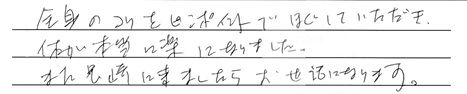 全身のコリをピンポイントでほぐしていただき、
体が本当に楽になりました。
また尼崎に来ましたらお世話になります。